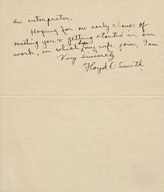 an interpreter.
Hoping for an early chance of
meeting you & getting started in our
work, in which hope my wife joins, I am
Very sincerely
Floyd O Smith